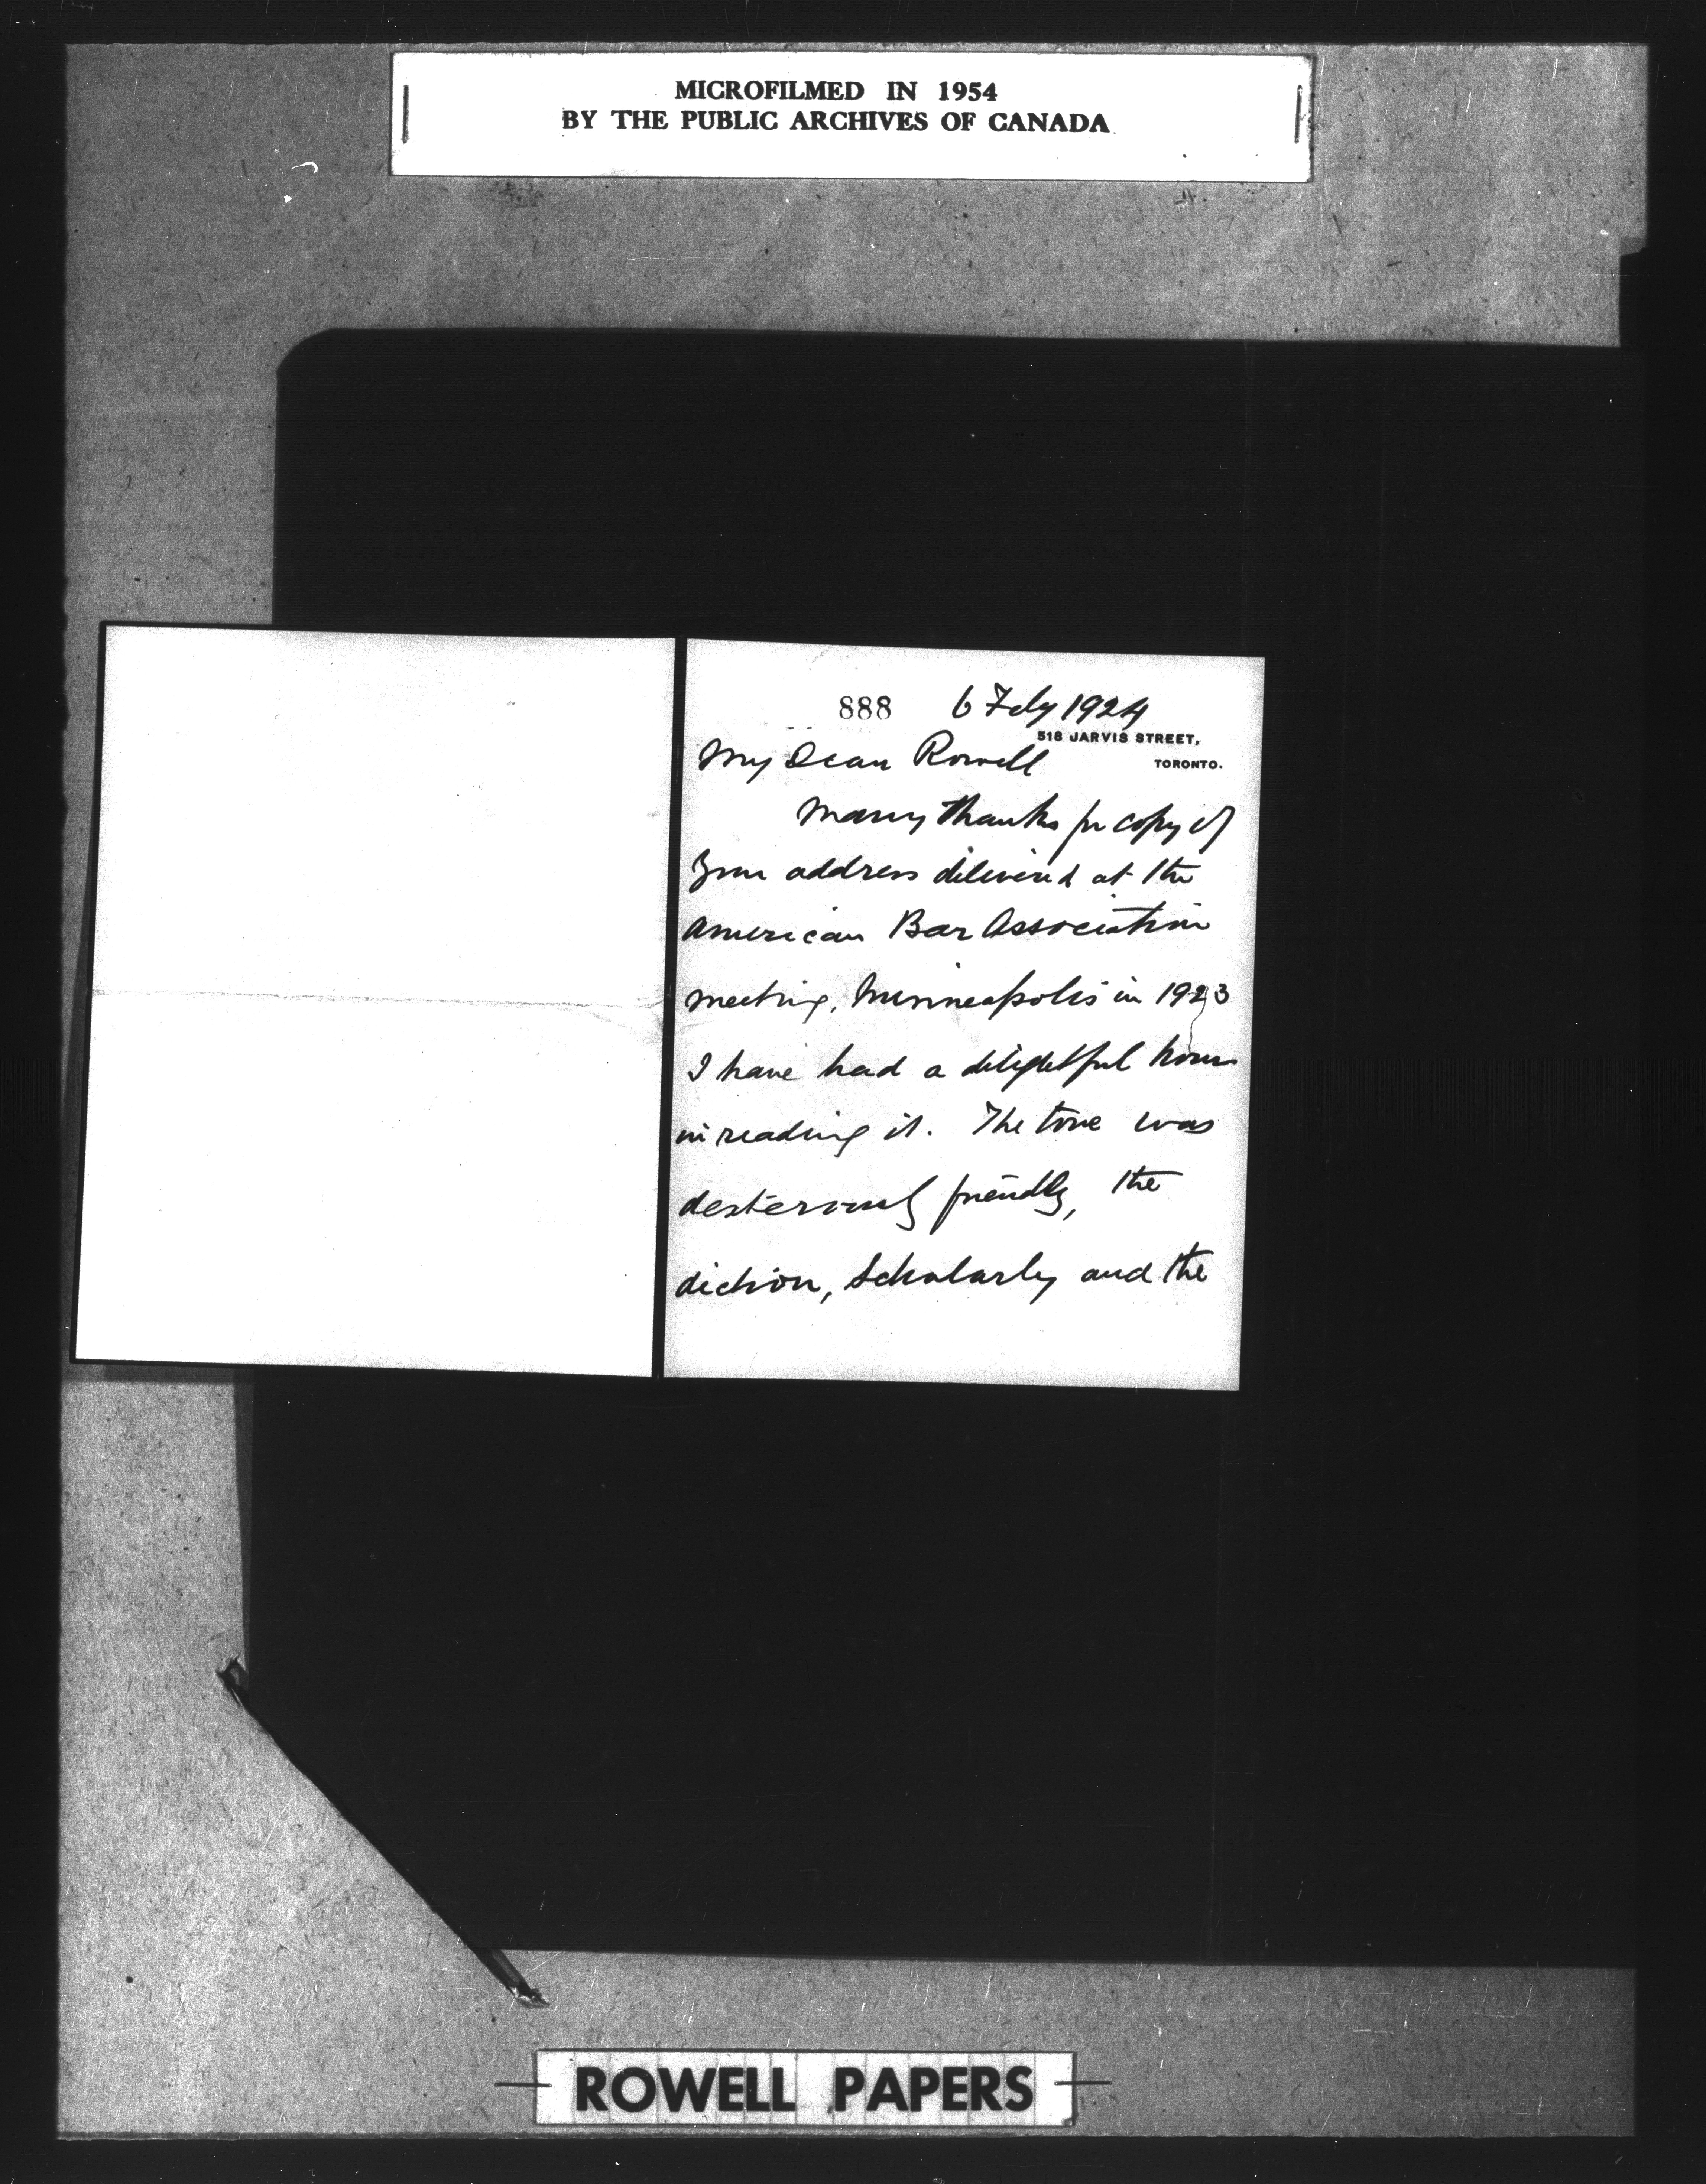 MICROFILMED IN 1954
BY THE PUBLIC ARCHIVES OF CANADA
888 6 Feby 1924
518 JARVIS STREET,
TORONTO.
My Dear Rowell
Many thanks for copy of
your address delivered at the
American Bar Association
meeting, Minneapolis in 1923
I have had a delightful hour
in reading it. The tone was
dexterously friendly, the
diction, scholarly and the
ROWELL PAPERS